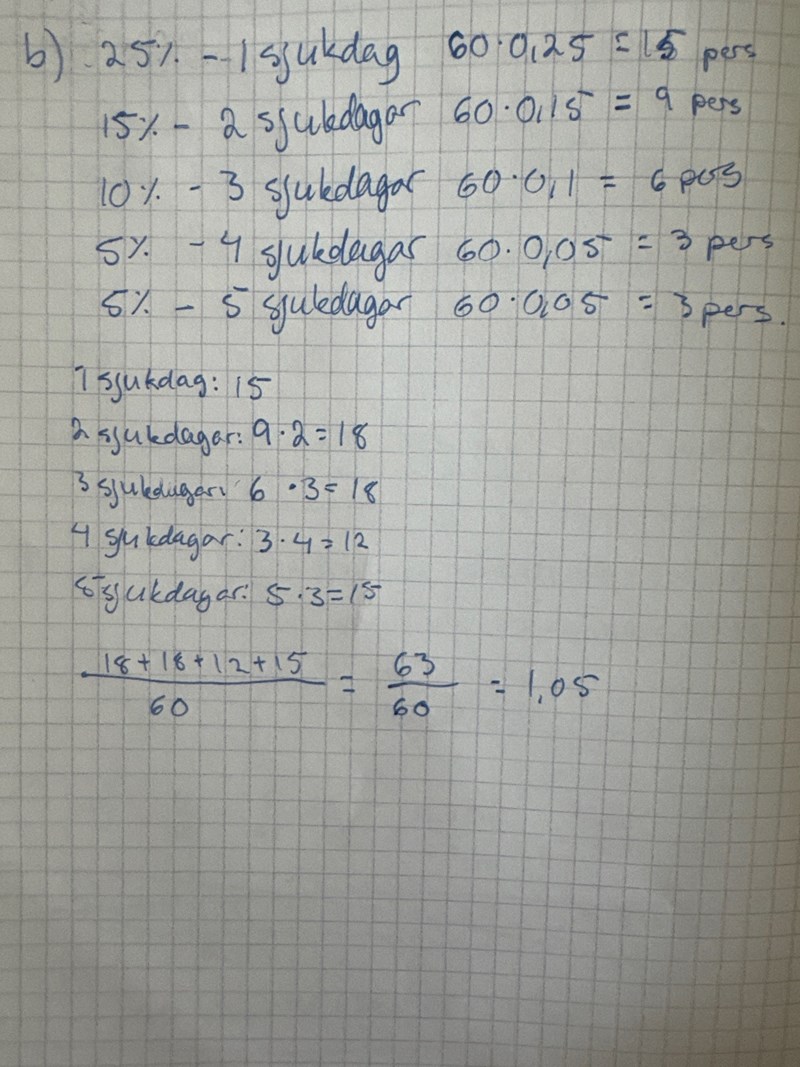 b) 25% - 1 sjukdag 60·0,25 = 15 pers
15% - 2 sjukdagar 60·0,15 = 9 pers
10% - 3 sjukdagar 60·0,1 = 6 pers
5% - 4 sjukdagar 60·0,05 = 3 pers
5% - 5 sjukdagar 60·0,05 = 3 pers.
1 sjukdag: 15
2 sjukdagar: 9·2=18
3 sjukdagar: 6·3=18
4 sjukdagar: 3·4=12
5 sjukdagar: 5·3=15
18+18+12+15 / 60 = 63 / 60 = 1,05